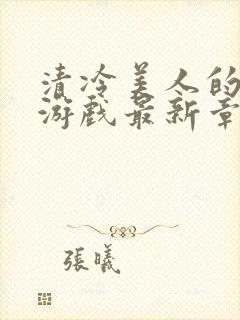 清冷美人的
游戏最新章
張曦